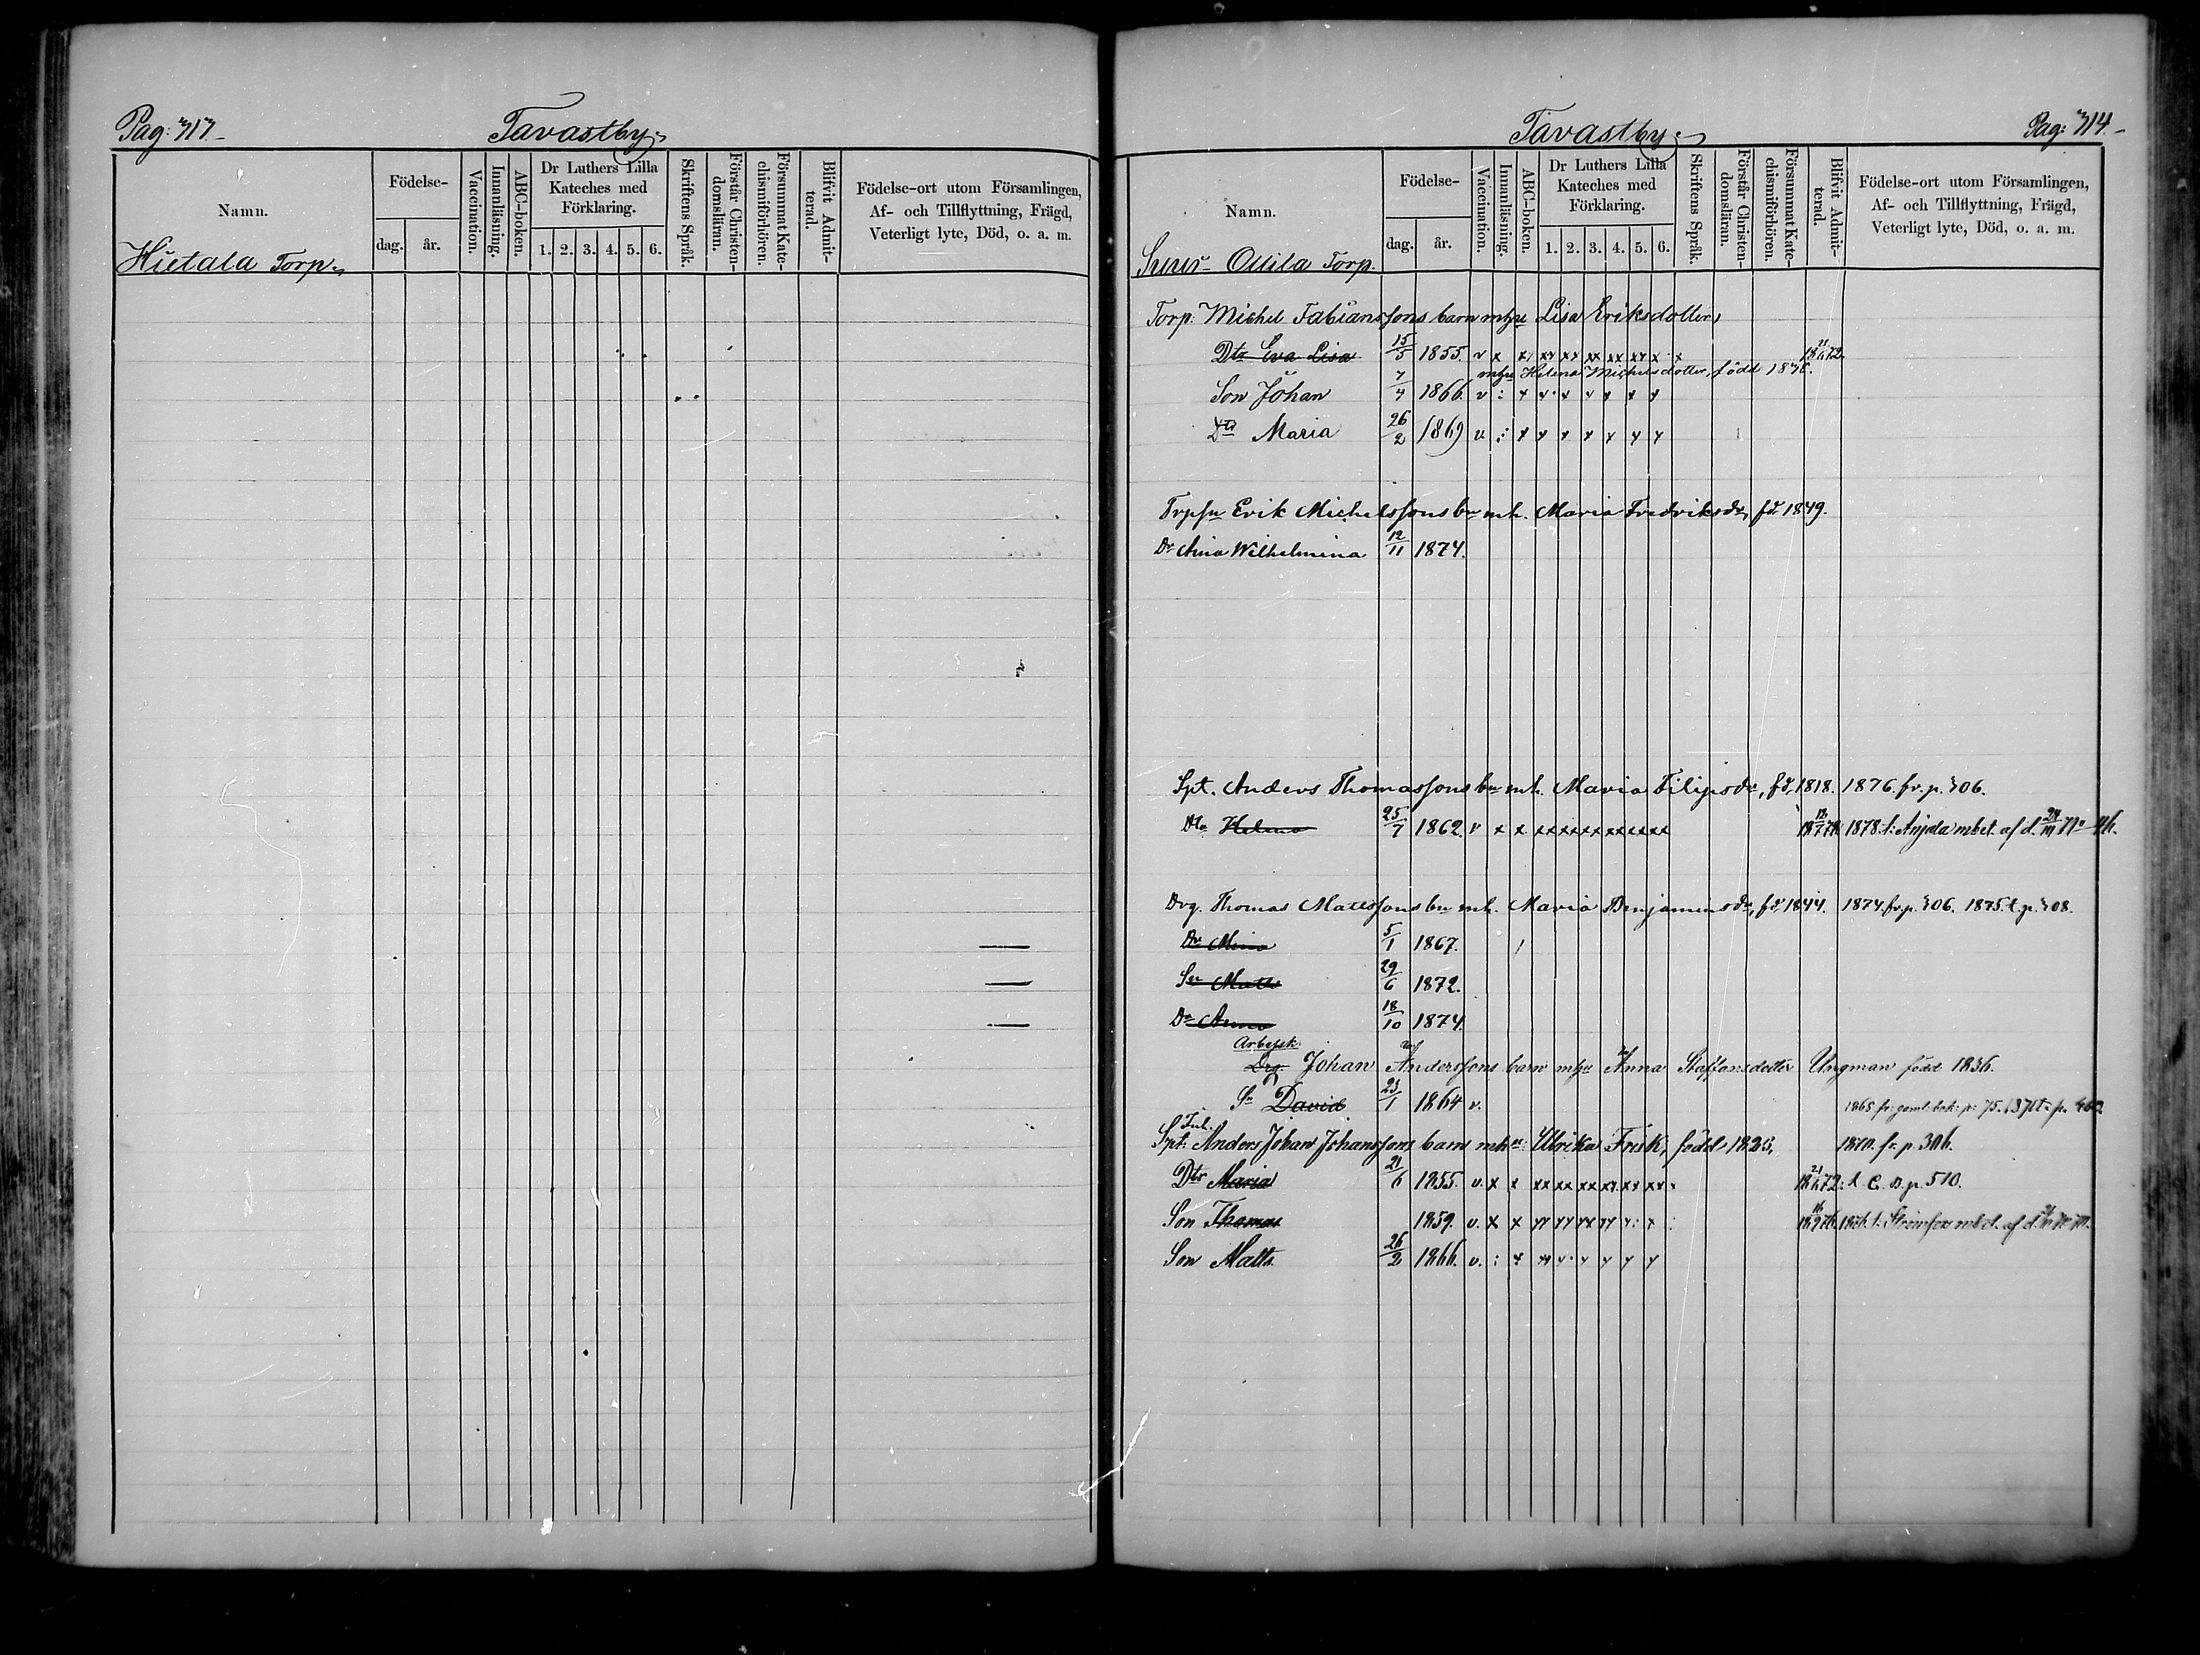 Tavastby
Namn.
Födelse-
dag. år.
Vaccination.
Innanläsning.
ABC-boken.
Dr Luthers Lilla
Kateches med
Förklaring.
1. 2. 3. 4. 5. 6.
Skriftens Språk.
Förstår Christen-
domsläran.
Försummat Kate-
chismiförhören.
Blifvit Admit-
terad.
Födelse-ort utom Församlingen,
Af- och Tillflyttning, Frägd,
Veterligt lyte, Död, o. a. m.
Hietala Torp
Tavastby Pag: 314
Namn.
Födelse-
dag. år.
Vaccination.
Innanläsning.
ABC-boken.
Dr Luthers Lilla
Kateches med
Förklaring.
1. 2. 3. 4. 5. 6.
Skriftens Språk.
Förstår Christen-
domsläran.
Försummat Kate-
chismiförhören.
Blifvit Admit-
terad.
Födelse-ort utom Församlingen,
Af- och Tillflyttning, Frägd,
Veterligt lyte, Död, o. a. m.
Ottila Torp.
Torp: Michel Fabianssons barn Lisa Eriksdotter,
Dtr Eva Lisa 15/5 1855. v x
Helena Michelsdotter, född
Son Johan 7/4 1866. v
Dtr Maria 26/2 1869 v
Erik Michelssons bn mh. Maria Fredriksdr, fd 1849.
Dr Aina Wilhelmina 12/11 1874.
Spt. Anders Thomassons bn mh. Maria Filipsdr, fd, 1818. 1876. fr. p. 306.
Dtr Helena 25/7 1862. v x x 1878. t. Anjala mbet. af d.
Drg. Thomas Matssons bn mh. Maria Benjaminsdr, fd, 1844. 1874 fr. p. 306. 1875. t. p. 308.
Dr Mina 5/1 1867.
Sn Matts 29/6 1872.
Dr Anna 18/10 1874.
Drg. Johan Anderssons barn Anna Staffansdotter Ungman född 1836.
Sn David 23/1 1864 v. 1868 fr. gaml. bok: p: 75.
Inh.
Spt: Anders Johan Johanssons barn Ulrika Frisk, född 1825, 1870. fr. p. 306.
Dtr Maria 21/6 1855. v. x x t. p. 510.
Son Thomas 1859. v. x x
Son Matts. 26/2 1866. v.